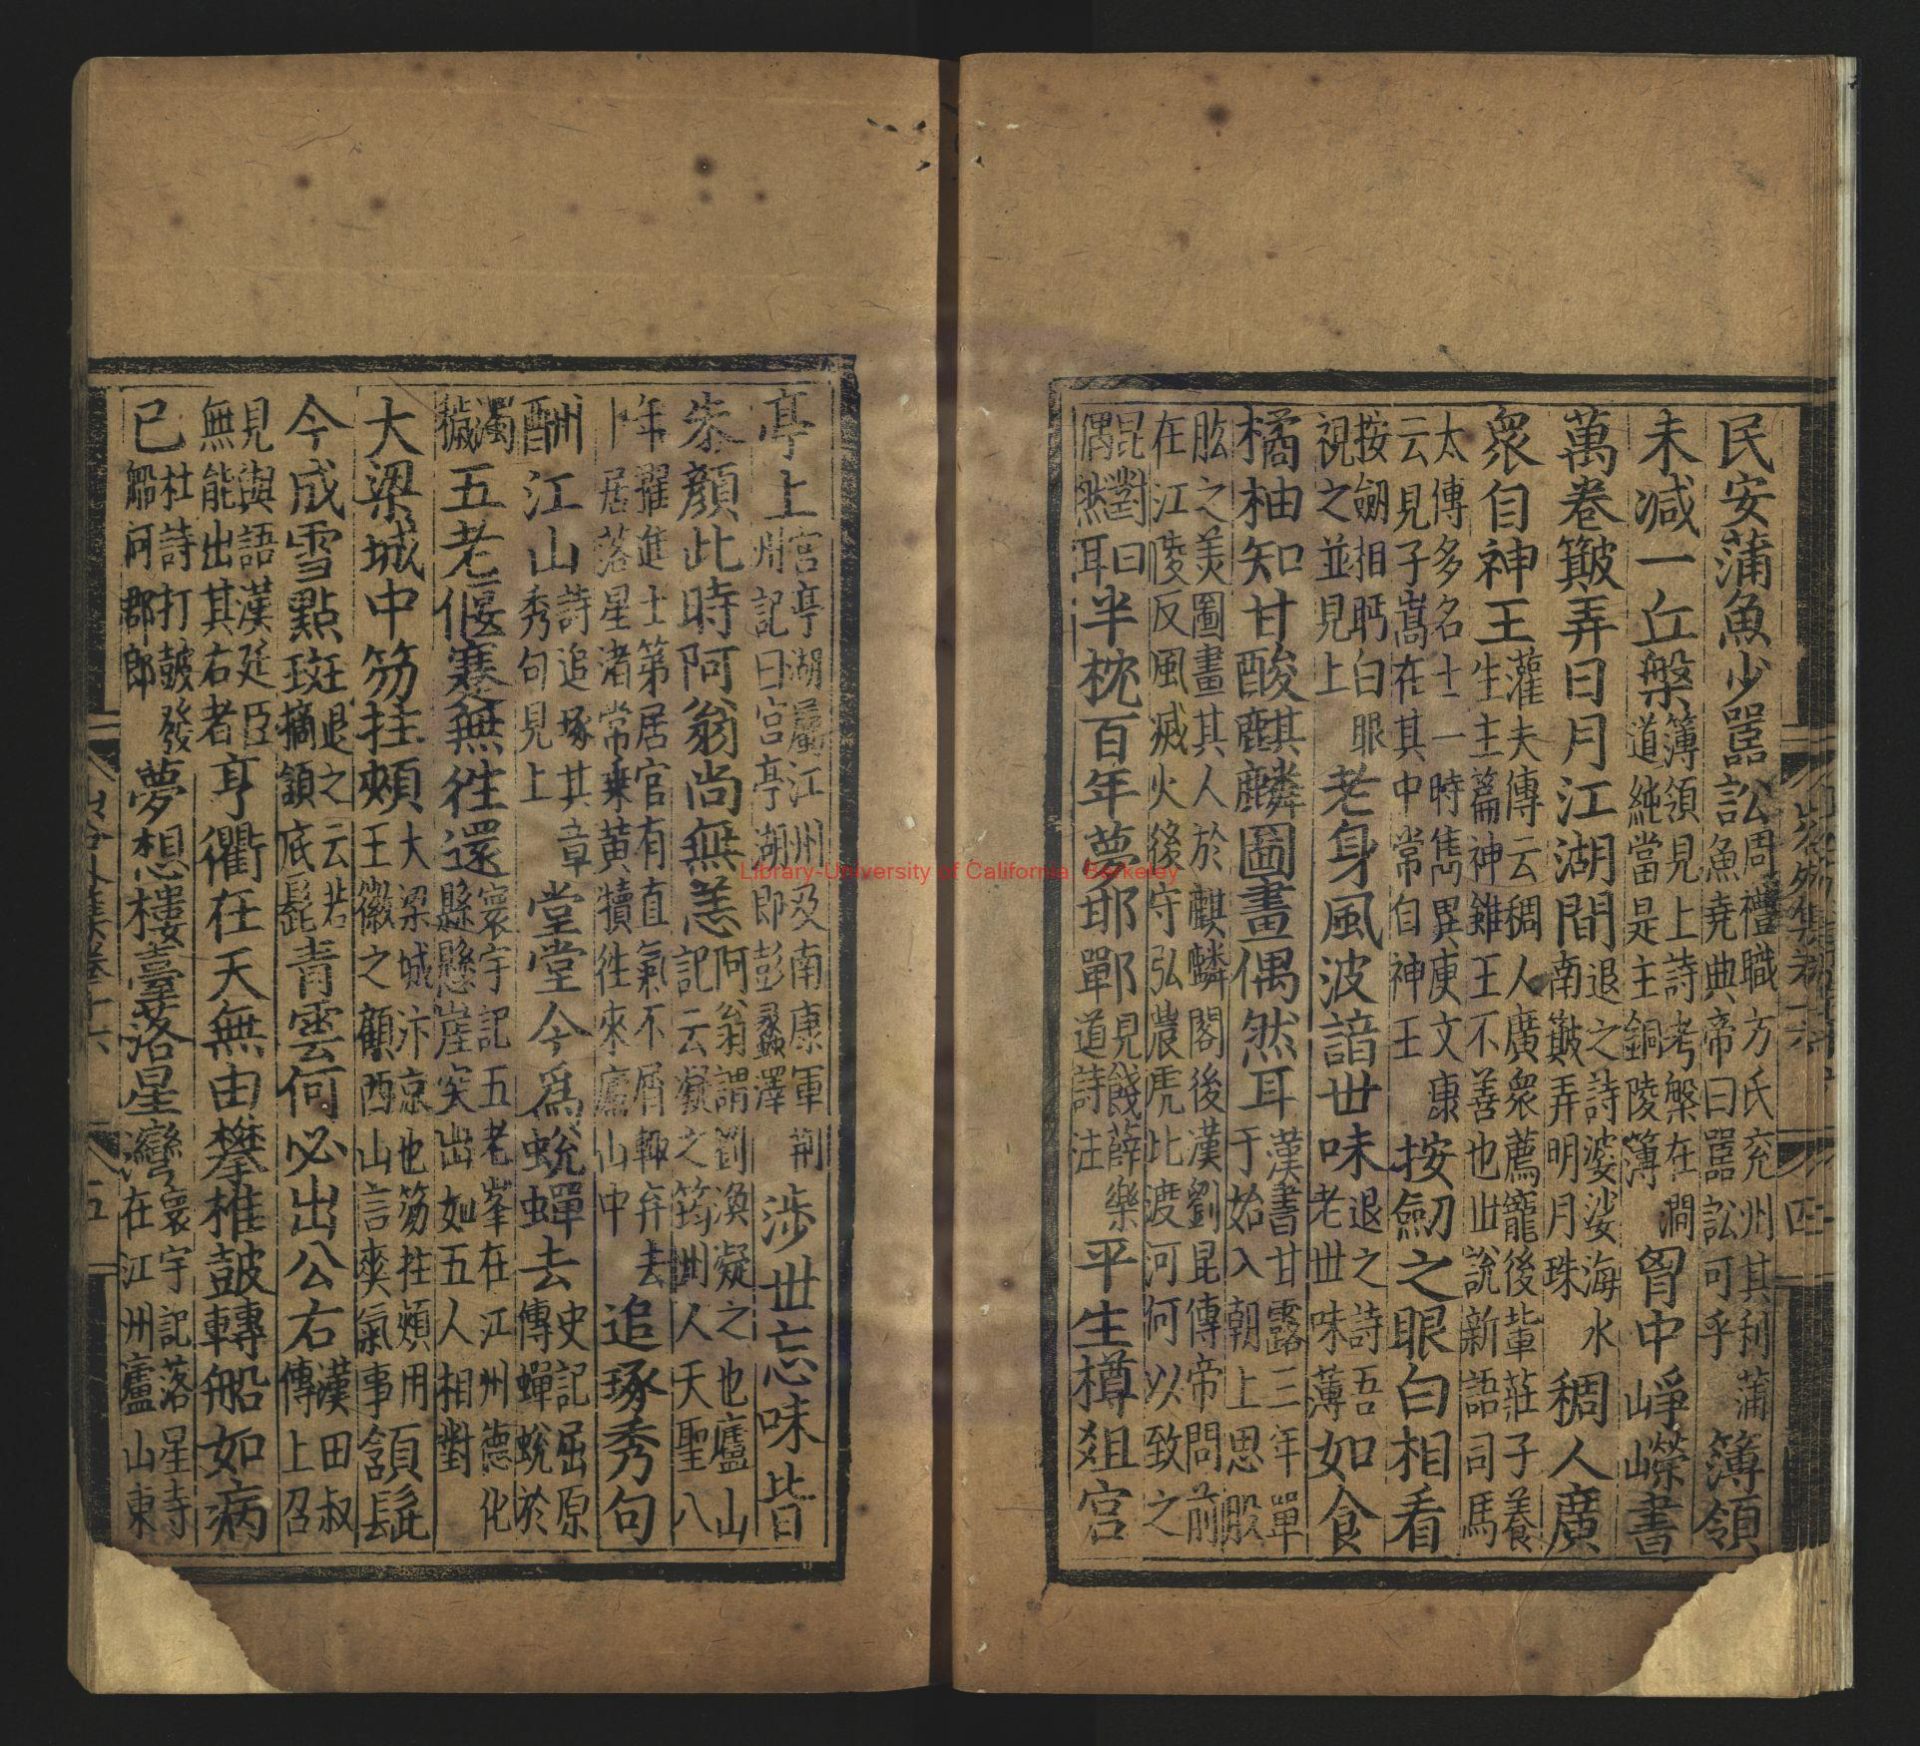 民安蒲魚少嚚訟周禮職方氏兖州其利蒲魚堯典帝曰嚚訟可乎簿領
未减一丘槃簿領見上詩考槃在澗道純當是主銅陵簿胷中崢嶸書
萬卷簸弄日月江湖間退之詩婆娑海水南簸弄明月珠稠人廣
衆自神王灌夫傳云稠人廣衆薦寵後輩莊子養生主篇神雖王不善也丗說新語司馬
太傅多名士一時雋異庾文康云見子嵩在其中常自神王按劒之眼白相看
按劒相眄白眼視之並見上老身風波諳丗味退之詩吾老丗味薄如食
橘柚知甘酸麒麟圖畫偶然耳漢書甘露三年單于始入朝上思股
肱之美圖畫其人於麒麟閣後漢劉昆傳帝問前在江陵反風滅火後守弘農虎此渡河何以致之
昆對曰偶然耳半枕百年夢邯鄲見餞薛樂道詩注平生樽俎宮
亭上宮亭湖屬江州及南康軍荆州記曰宮亭湖即彭蠡澤涉丗忘味皆
朱顏此時阿翁尚無恙阿翁謂劉渙凝之也廬山記云凝之筠州人天聖八
年擢進士第居官有直氣不屑輒弃去卜居落星渚常乘黄犢徃來廬山中追琢秀句
酬江山詩追琢其章秀句見上堂堂今爲蛻蟬去史記屈原傳蟬蛻於
濁穢五老偃蹇無徃還寰宇記五老峯在江州德化縣懸崖突出如五人相對
大梁城中笏拄頰大梁城汴京也笏拄頰用王徽之顧西山言爽氣事頷髭
今成雪點斑退之云若摘頷底髭青雲何必出公右漢田叔傳上召
見與語漢廷臣無能出其右者亨衢在天無由攀椎鼓轉船如病
已杜詩打鼓發船何郡郎夢想樓臺落星灣寰宇記落星寺在江州廬山東
山谷外集卷十六
五
Library-University of California Berkeley